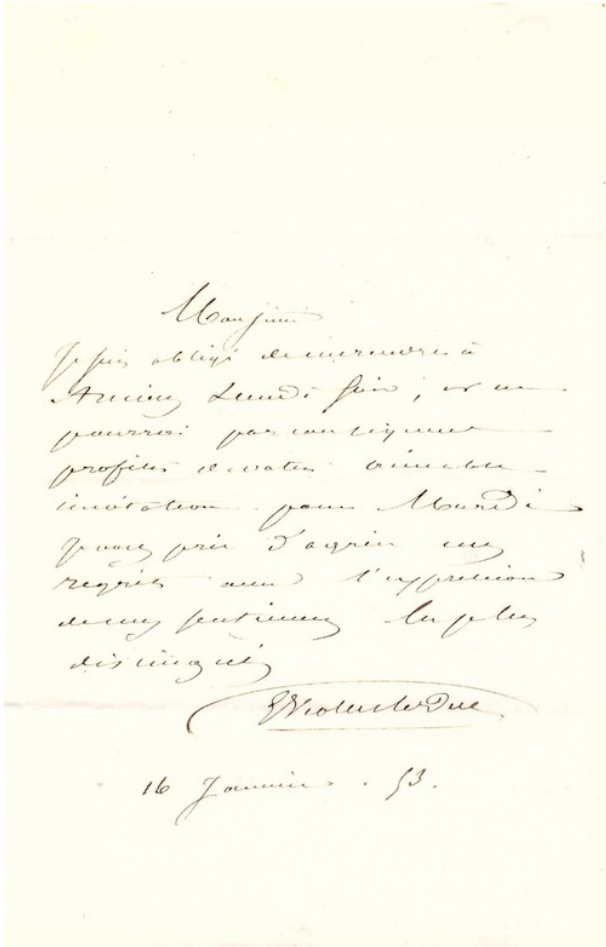 Monsieur
Je suis obligé de me rendre à
Amiens Lundi soir, et ne
pourrai par conséquent
profiter de votre aimable
invitation pour Mardi
Je vous prie d'agréer mes
regrets avec l'expression
de mes sentiments les plus
distingués
E Viollet Le Duc
16 Janvier . 53.